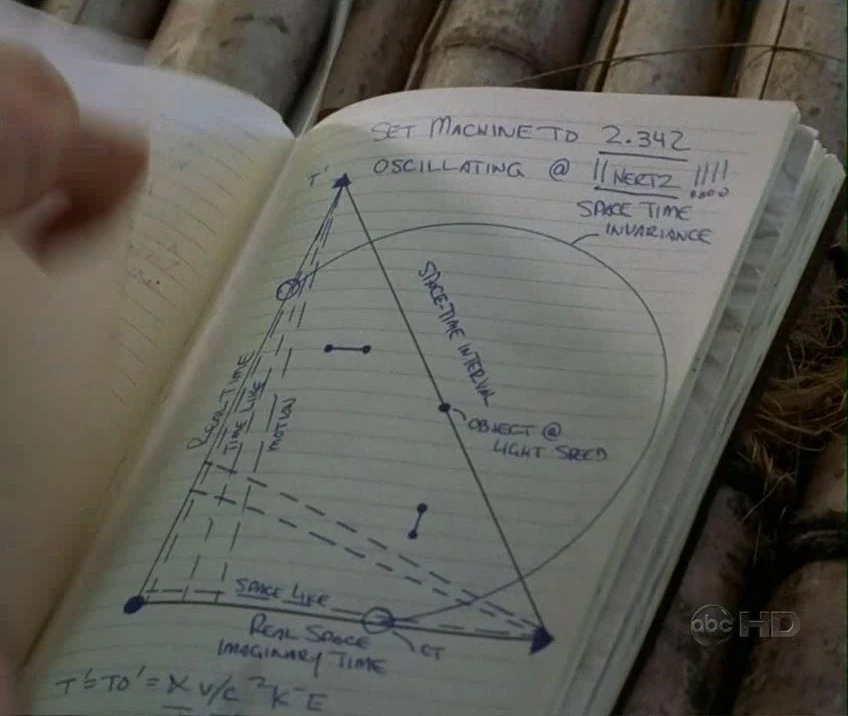 SET MACHINE TO 2.342
OSCILLATING @ 11 HERTZ
SPACE TIME
INVARIANCE
T'
SPACE-TIME INTERVAL
REAL TIME
TIME LIKE
MOTION
OBJECT @
LIGHT SPEED
SPACE LIKE
REAL SPACE
IMAGINARY TIME
CT
T'=TO'= X V/C ²K⁻E
abc HD